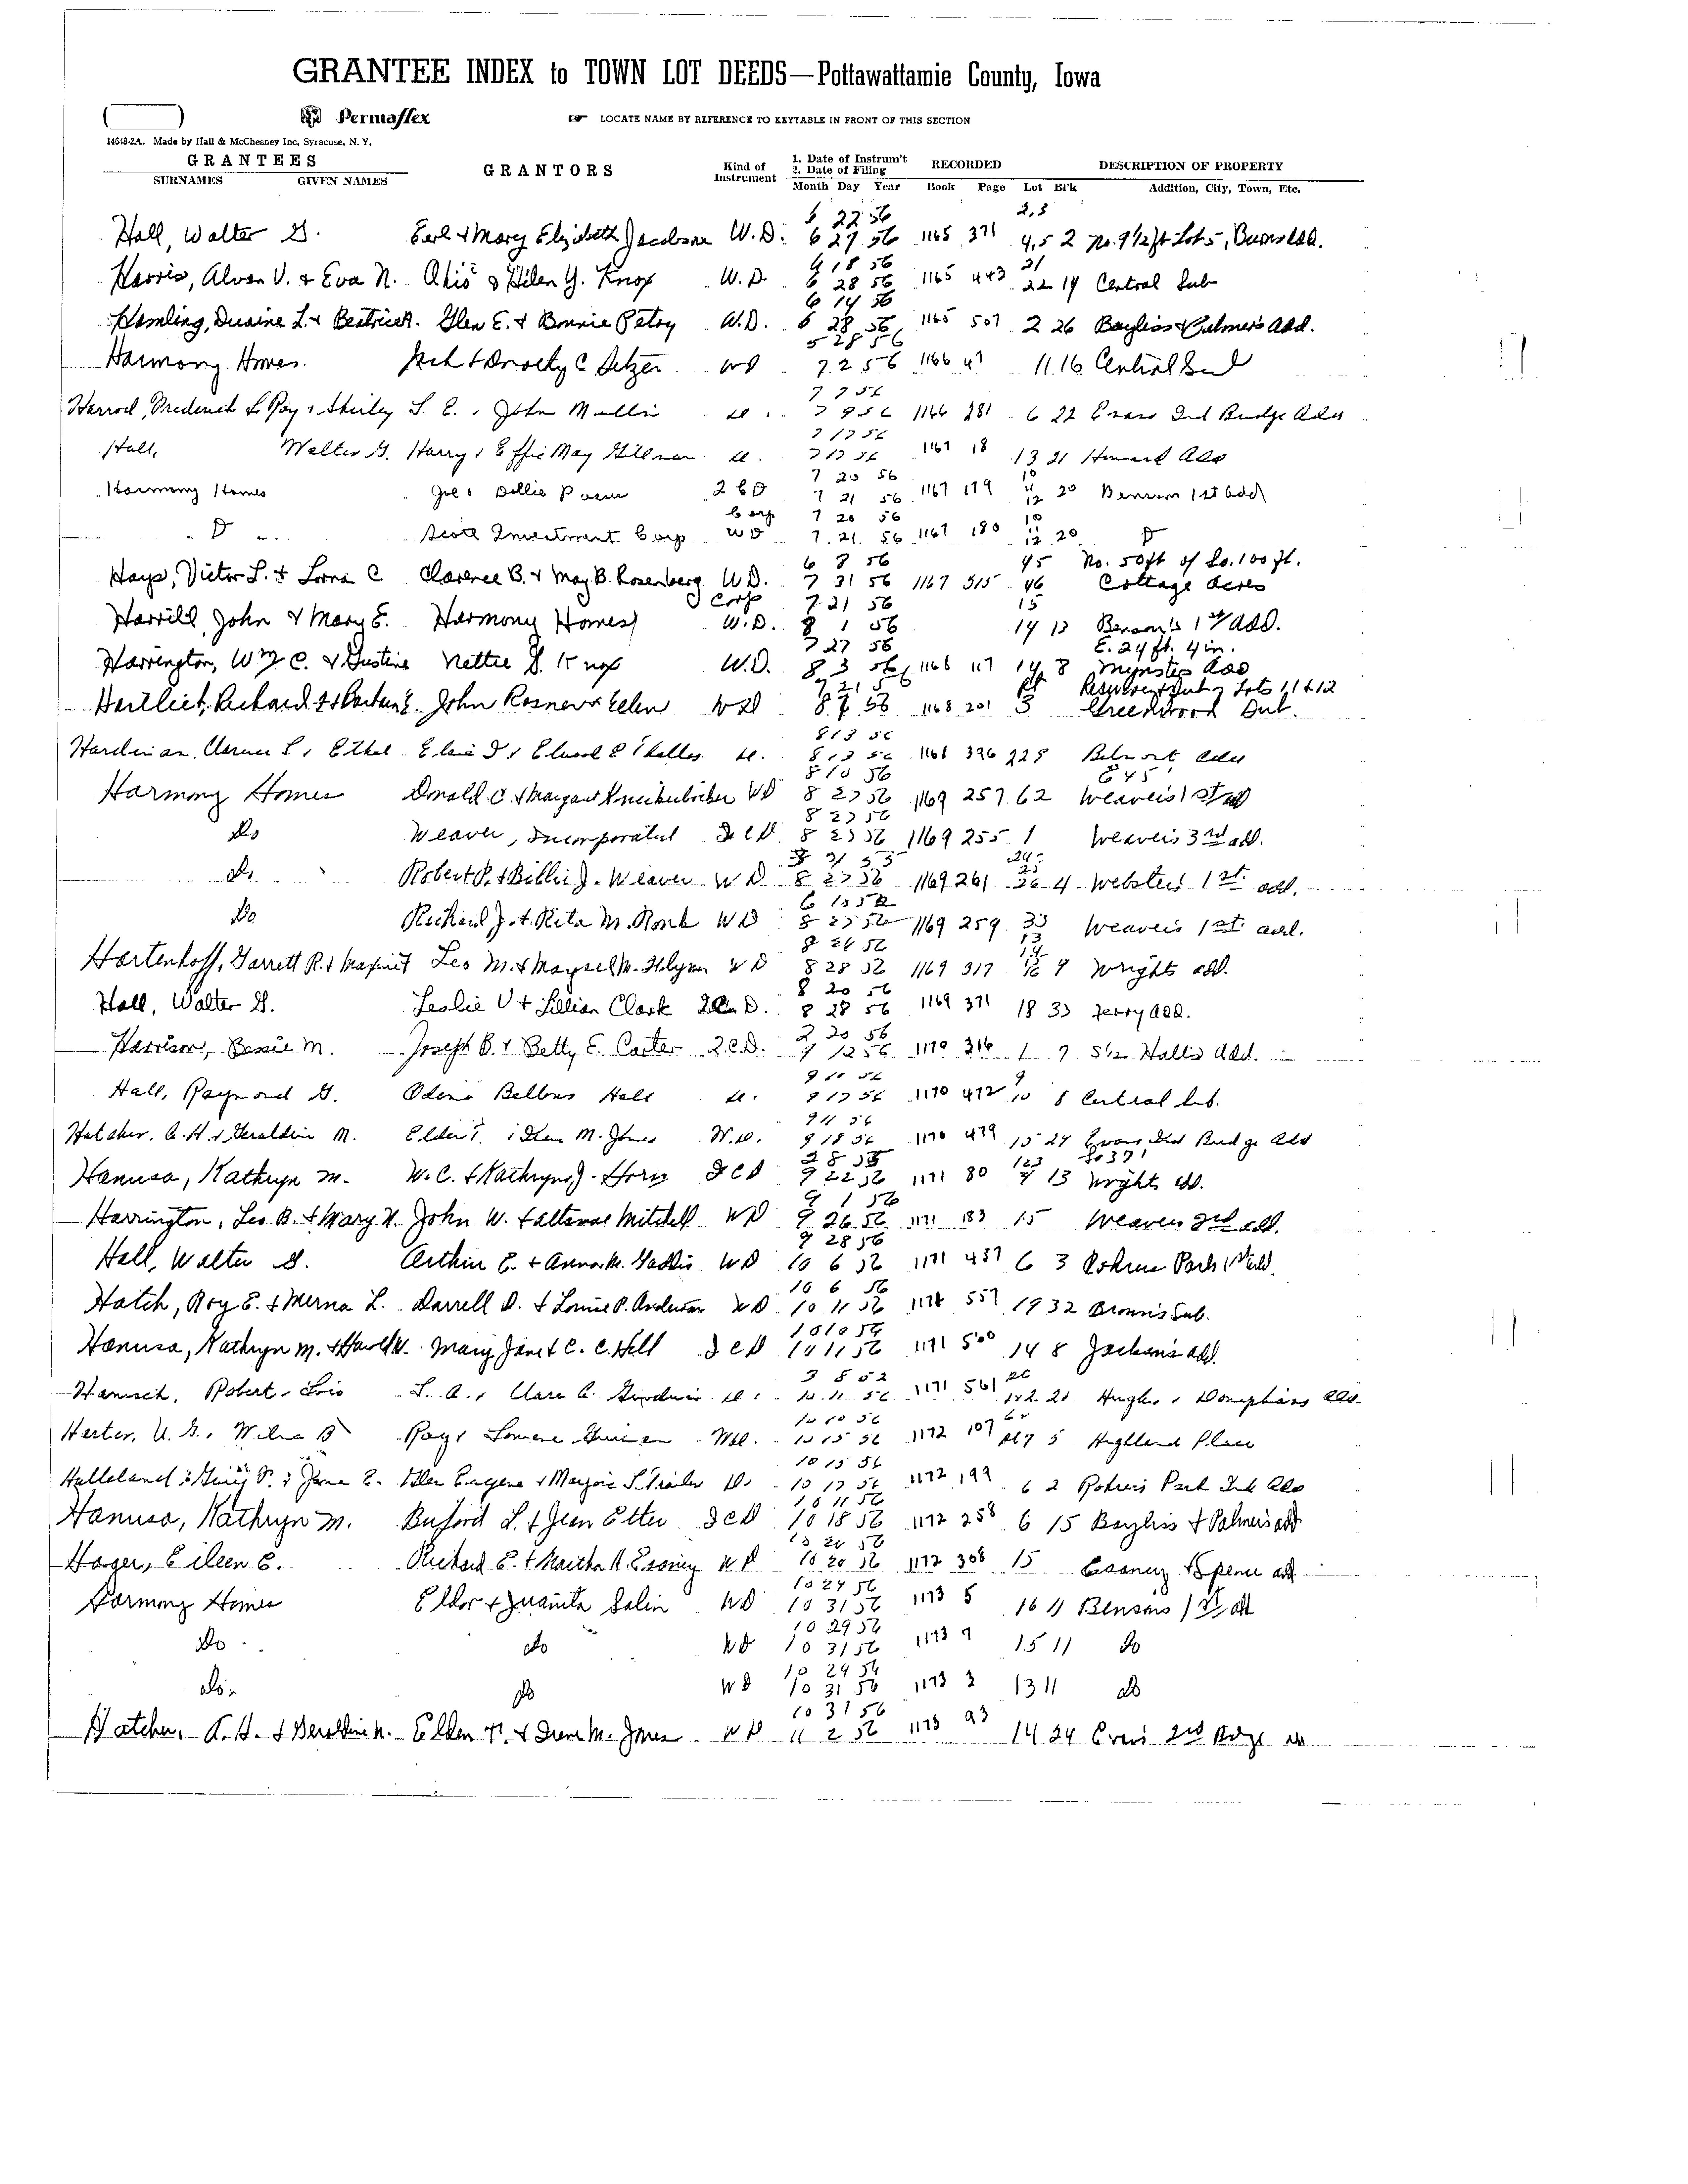 GRANTEE INDEX to TOWN LOT DEEDS—Pottawattamie County, Iowa
Permaflex LOCATE NAME BY REFERENCE TO KEYTABLE IN FRONT OF THIS SECTION
14618-2A. Made by Hall & McChesney Inc. Syracuse, N. Y.
GRANTEES GRANTORS Kind of Instrument 1. Date of Instrum't 2. Date of Filing RECORDED DESCRIPTION OF PROPERTY
SURNAMES GIVEN NAMES Month Day Year Book Page Lot Bl'k Addition, City, Town, Etc.
6 22 56 2,3
Hall, Walter G. Earl & Mary Elizabeth Jacobsen W.D. 6 27 56 1165 371 4,5 2 No. 9 1/2 ft Lot 5, Burns add.
6 18 56 21
Harris, Alvan V. & Eva N. & Helen Y. Knox W.D. 6 28 56 1165 443 22 19 Central Sub
6 14 56
Hamling, Duaine L. & Beatrice A. Glen E. & Bonnie Petry W.D. 6 28 56 1165 507 2 26 Bayliss & Palmer's Add.
5 28 56
Harmony Homes. Jack & Dorothy C Setzer WD 7 2 56 1166 47 11 16 Central Sub
7 7 56
Harrod, Frederick L Roy & Shirley S. E. & John Mullin 7 9 56 1166 281 6 22 Evans 2nd Bridge Add
7 17 56
Hall, Walter G. Harry & Effie May Gillman 7 17 56 1167 18 13 21 Howard Add
7 20 56 10
Harmony Homes Joe & Dollie 2 CD 7 21 56 1167 179 11 12 20 Benson 1st Add
Corp 7 20 56 10
D Scott Investment Corp WD 7 21 56 1167 180 11 12 20 D
6 8 56 45 No. 50 ft of So. 100 ft.
Hays, Victor L. & Lorna C Clarence B. & May B. Rosenberg W.D. 7 31 56 1167 315 46 Cottage Acres
Corp 7 21 56 15
Harrill, John & Mary E. Harmony Homes W.D. 8 1 56 14 13 Benson's 1st Add.
7 27 56 E. 24 ft. 4 in.
Harrington, Wm C. & Justine Nettie S. Knox W.D. 8 3 56 1168 117 14 8 Mynster Add
7 21 56 Pt Lots 11 & 12
Hartlieb, Richard John Rosner & Eelen WD 8 7 56 1168 201 3 Greenwood Sub.
8 13 56
Hardiman, Clarence S. & Ethel Elsie I. & Elwood E. 8 13 56 1168 396 229 Belmont Add
8 10 56 E 45'
Harmony Homes Donald C. & Margaret Knickerbocker WD 8 27 56 1169 257 62 Weaver's 1st add
8 27 56
Do Weaver, Incorporated 2CD 8 27 56 1169 255 1 Weaver's 3rd add.
8 31 55 24
Do Robert P. & Billie J. Weaver WD 8 27 56 1169 261 25 26 4 Webster's 1st add.
6 10 52
Do Richard J. & Rita M. Ronk WD 8 27 56 1169 259 33 Weaver's 1st add.
8 24 56 13
Hartenhoff, Garrett R. & Margaret Leo M. & Maysel M. Flynn WD 8 28 56 1169 317 14 15 9 Wrights add.
8 20 56
Hall, Walter G. Leslie V & Lillian Clark 2CD. 8 28 56 1169 371 18 33 Terry Add.
2 20 56
Harrison, Bessie M. Joseph B. & Betty E. Carter 2.C.D. 9 12 56 1170 316 1 7 S 1/2 Hall's Add.
9 10 56 9
Hall, Raymond G. Odena Bellows Hall 9 17 56 1170 472 10 8 Central Sub.
9 11 56
Hatcher, A. H. & Geraldine M. Elden T. & Irene M. Jones W.D. 9 18 56 1170 479 15 24 Evans 2nd Bridge Add
2 8 55 123 So 37'
Hanusa, Kathryn M. W.C. & Kathryn J. 2CD 9 22 56 1171 80 4 13 Wrights add.
9 1 56
Harrington, Leo B. & Mary N. John W. & Mitchell WD 9 26 56 1171 183 15 Weavers 2nd add.
9 28 56
Hall, Walter G. Arthur E. & Anna M. Gaddis WD 10 6 56 1171 437 6 3 Rohrers Park 1st add.
10 6 56
Hatch, Roy E. & Merna L. Darrell D. & Lonnie P. Anderson WD 10 11 56 1171 557 19 32 Brown's Sub.
10 10 56
Hanusa, Kathryn M. & Harold W. Mary Jane & C. C. Hill 2CD 10 11 56 1171 560 14 8 Jackson's add.
3 8 52 20
Hanusch, Robert & Lois L. A. & Clara A. Goodwin 10 11 56 1171 561 1&2 21 Hughes & Doniphan's Add.
10 10 56
Herter, U. G. & Wilma B Ray & WD. 10 15 56 1172 107 pt 7 5 Highland Place
10 15 56
Halleland & Jane E. Allen Eugene & Marjorie S. 10 17 56 1172 199 6 2 Rohrers Park 2nd Add
10 11 56
Hanusa, Kathryn M. Buford L. & Jean Etter 2CD 10 18 56 1172 258 6 15 Bayliss & Palmer's add
10 20 56
Hager, Eileen E. Richard E. & Martha H. WD 10 20 56 1172 308 15 & Spence add
10 24 56
Harmony Homes Eldor & Juanita Salin WD 10 31 56 1173 5 16 11 Bensons 1st add
10 29 56
Do Do WD 10 31 56 1173 7 15 11 Do
10 24 56
Do Do WD 10 31 56 1173 3 13 11 Do
10 31 56
Hatcher, A. H. & Geraldine M. Elden T. & Irene M. Jones WD 11 2 56 1173 93 14 24 Evans 2nd Bdge Ad